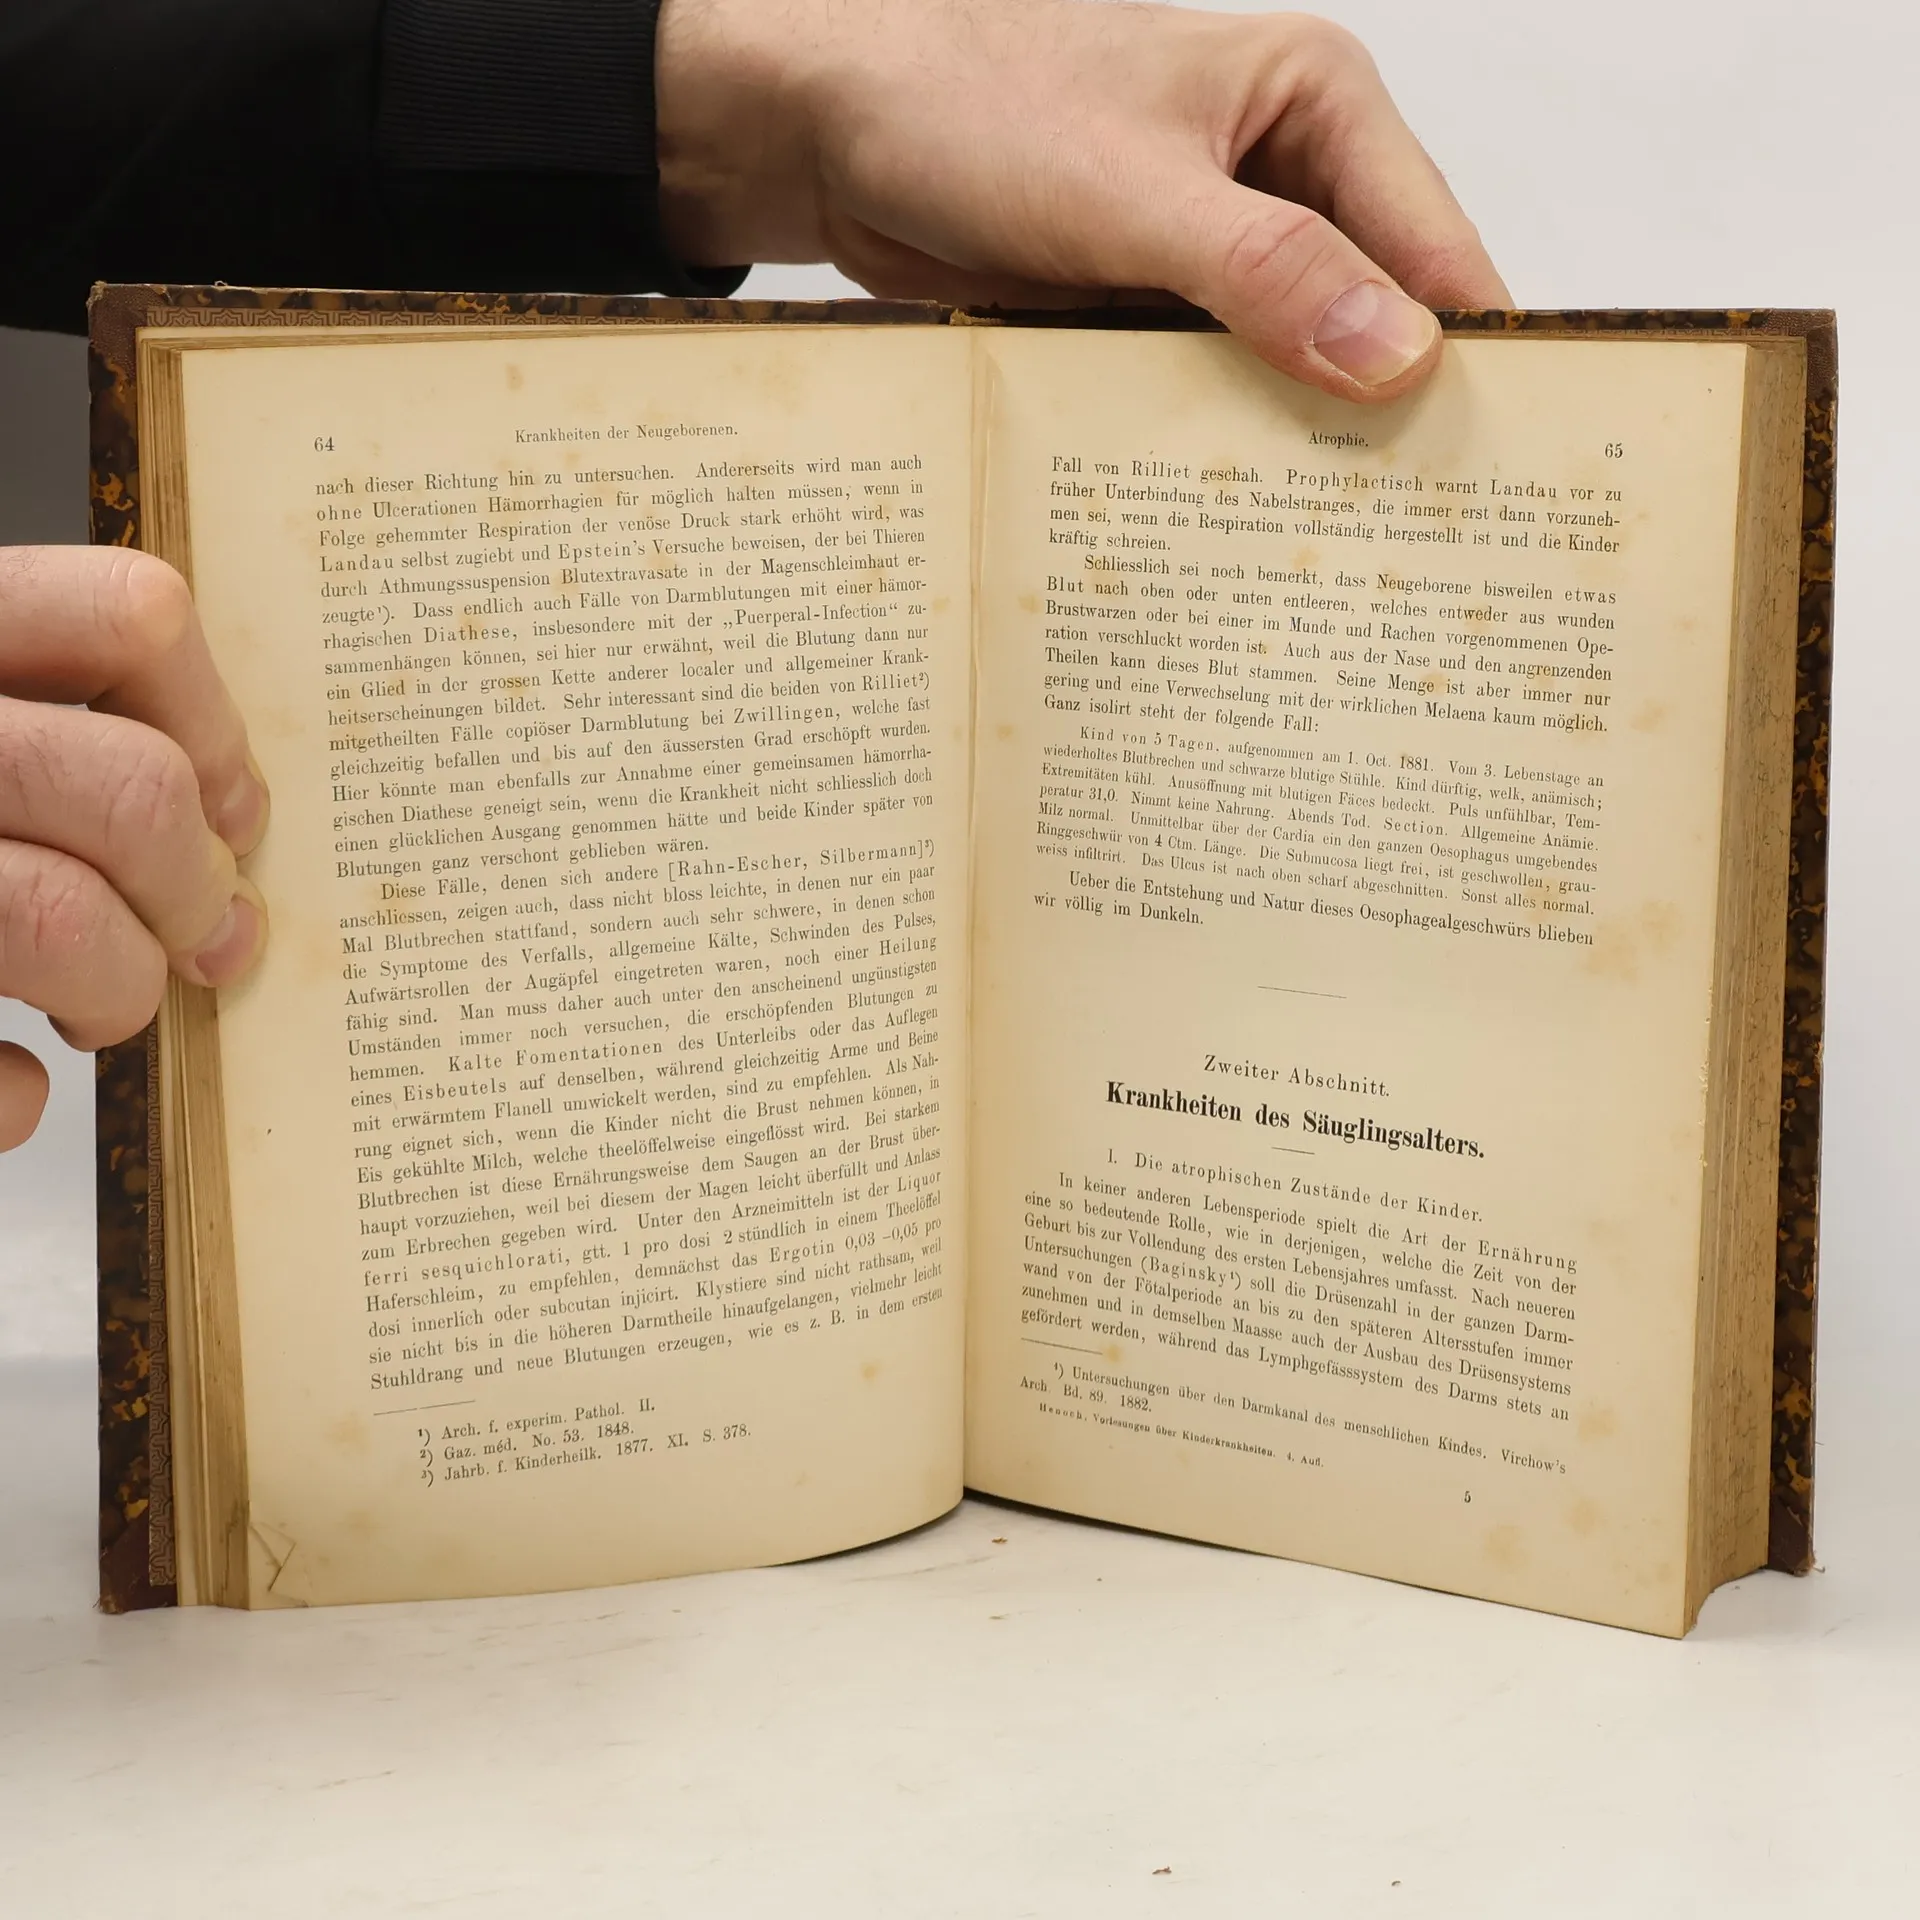 64
Krankheiten der Neugeborenen.
nach dieser Richtung hin zu untersuchen. Andererseits wird man auch
ohne Ulcerationen Hämorrhagien für möglich halten müssen, wenn in
Folge gehemmter Respiration der venöse Druck stark erhöht wird, was
Landau selbst zugiebt und Epstein's Versuche beweisen, der bei Thieren
durch Athmungssuspension Blutextravasate in der Magenschleimhaut er-
zeugte¹). Dass endlich auch Fälle von Darmblutungen mit einer hämor-
rhagischen Diathese, insbesondere mit der „Puerperal-Infection“ zu-
sammenhängen können, sei hier nur erwähnt, weil die Blutung dann nur
ein Glied in der grossen Kette anderer localer und allgemeiner Krank-
heitserscheinungen bildet. Sehr interessant sind die beiden von Rilliet²)
mitgetheilten Fälle copiöser Darmblutung bei Zwillingen, welche fast
gleichzeitig befallen und bis auf den äussersten Grad erschöpft wurden.
Hier könnte man ebenfalls zur Annahme einer gemeinsamen hämorrha-
gischen Diathese geneigt sein, wenn die Krankheit nicht schliesslich doch
einen glücklichen Ausgang genommen hätte und beide Kinder später von
Blutungen ganz verschont geblieben wären.
Diese Fälle, denen sich andere [Rahn-Escher, Silbermann]³)
anschliessen, zeigen auch, dass nicht bloss leichte, in denen nur ein paar
Mal Blutbrechen stattfand, sondern auch sehr schwere, in denen schon
die Symptome des Verfalls, allgemeine Kälte, Schwinden des Pulses,
Aufwärtsrollen der Augäpfel eingetreten waren, noch einer Heilung
fähig sind. Man muss daher auch unter den anscheinend ungünstigsten
Umständen immer noch versuchen, die erschöpfenden Blutungen zu
hemmen. Kalte Fomentationen des Unterleibs oder das Auflegen
eines Eisbeutels auf denselben, während gleichzeitig Arme und Beine
mit erwärmtem Flanell umwickelt werden, sind zu empfehlen. Als Nah-
rung eignet sich, wenn die Kinder nicht die Brust nehmen können, in
Eis gekühlte Milch, welche theelöffelweise eingeflösst wird. Bei starkem
Blutbrechen ist diese Ernährungsweise dem Saugen an der Brust über-
haupt vorzuziehen, weil bei diesem der Magen leicht überfüllt und Anlass
zum Erbrechen gegeben wird. Unter den Arzneimitteln ist der Liquor
ferri sesquichlorati, gtt. 1 pro dosi 2 stündlich in einem Theelöffel
Haferschleim, zu empfehlen, demnächst das Ergotin 0,03–0,05 pro
dosi innerlich oder subcutan injicirt. Klystiere sind nicht rathsam, weil
sie nicht bis in die höheren Darmtheile hinaufgelangen, vielmehr leicht
Stuhldrang und neue Blutungen erzeugen, wie es z. B. in dem ersten
¹) Arch. f. experim. Pathol. II.
²) Gaz. méd. No. 53. 1848.
³) Jahrb. f. Kinderheilk. 1877. XI. S. 378.
Atrophie.
65
Fall von Rilliet geschah. Prophylactisch warnt Landau vor zu
früher Unterbindung des Nabelstranges, die immer erst dann vorzuneh-
men sei, wenn die Respiration vollständig hergestellt ist und die Kinder
kräftig schreien.
Schliesslich sei noch bemerkt, dass Neugeborene bisweilen etwas
Blut nach oben oder unten entleeren, welches entweder aus wunden
Brustwarzen oder bei einer im Munde und Rachen vorgenommenen Ope-
ration verschluckt worden ist. Auch aus der Nase und den angrenzenden
Theilen kann dieses Blut stammen. Seine Menge ist aber immer nur
gering und eine Verwechselung mit der wirklichen Melaena kaum möglich.
Ganz isolirt steht der folgende Fall:
Kind von 5 Tagen, aufgenommen am 1. Oct. 1881. Vom 3. Lebenstage an
wiederholtes Blutbrechen und schwarze blutige Stühle. Kind dürftig, welk, anämisch;
Extremitäten kühl. Anusöffnung mit blutigen Fäces bedeckt. Puls unfühlbar, Tem-
peratur 31,0. Nimmt keine Nahrung. Abends Tod. Section. Allgemeine Anämie.
Milz normal. Unmittelbar über der Cardia ein den ganzen Oesophagus umgebendes
Ringgeschwür von 4 Ctm. Länge. Die Submucosa liegt frei, ist geschwollen, grau-
weiss infiltrirt. Das Ulcus ist nach oben scharf abgeschnitten. Sonst alles normal.
Ueber die Entstehung und Natur dieses Oesophagealgeschwürs blieben
wir völlig im Dunkeln.
Zweiter Abschnitt.
Krankheiten des Säuglingsalters.
1. Die atrophischen Zustände der Kinder.
In keiner anderen Lebensperiode spielt die Art der Ernährung
eine so bedeutende Rolle, wie in derjenigen, welche die Zeit von der
Geburt bis zur Vollendung des ersten Lebensjahres umfasst. Nach neueren
Untersuchungen (Baginsky¹) soll die Drüsenzahl in der ganzen Darm-
wand von der Fötalperiode an bis zu den späteren Altersstufen immer
zunehmen und in demselben Maasse auch der Ausbau des Drüsensystems
gefördert werden, während das Lymphgefässsystem des Darms stets an
¹) Untersuchungen über den Darmkanal des menschlichen Kindes. Virchow's
Arch. Bd. 89. 1882.
Henoch, Vorlesungen über Kinderkrankheiten. 4. Aufl.
5